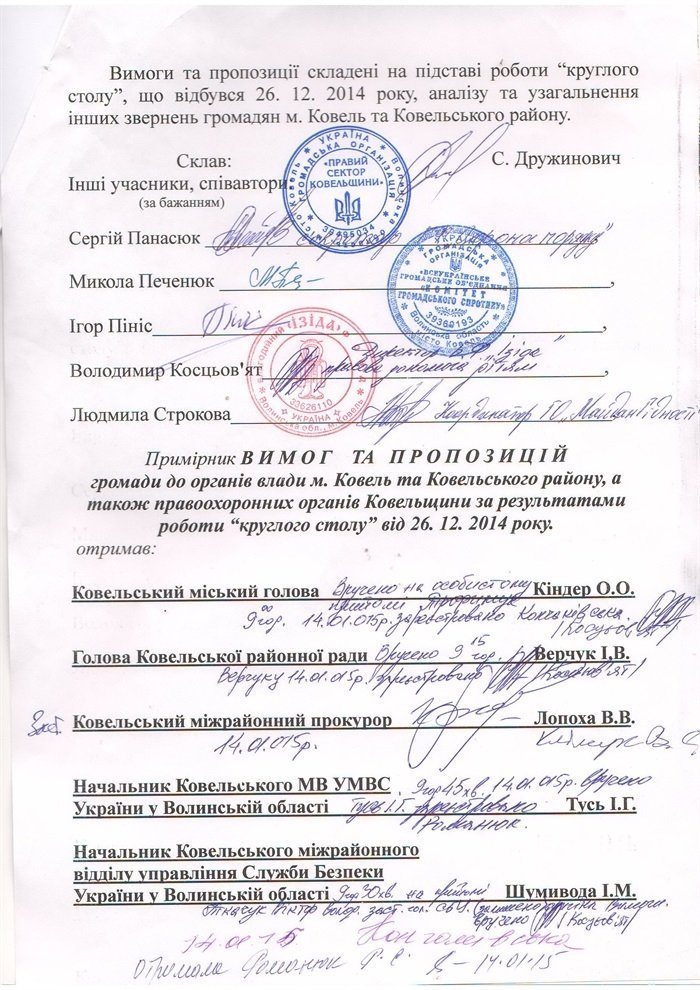 Вимоги та пропозиції складені на підставі роботи “круглого
столу”, що відбувся 26. 12. 2014 року, аналізу та узагальнення
інших звернень громадян м. Ковель та Ковельського району.
Склав: С. Дружинович
Інші учасники, співавтори:
(за бажанням)
УКРАЇНА
ГРОМАДСЬКА ОРГАНІЗАЦІЯ
«ПРАВИЙ
СЕКТОР
КОВЕЛЬЩИНИ»
39495034
Сергій Панасюк
Микола Печенюк
УКРАЇНА
ГРОМАДСЬКА
ОРГАНІЗАЦІЯ
«ВСЕУКРАЇНСЬКЕ
ГРОМАДСЬКЕ ОБ'ЄДНАННЯ
«КОМІТЕТ
ГРОМАДСЬКОГО СПРОТИВУ»
39360193
Волинська область
місто Ковель
Ігор Пініс
«ІЗІДА»
33626110
УКРАЇНА
Волинська обл., м. Ковель
Володимир Косцьов'ят Директор „Ізіда”
правова допомога дітям
Людмила Строкова Координатор ГО „Майдан Гідності
Примірник В И М О Г ТА П Р О П О З И Ц І Й
громади до органів влади м. Ковель та Ковельського району, а
також правоохоронних органів Ковельщини за результатами
роботи “круглого столу” від 26. 12. 2014 року.
отримав:
Ковельський міський голова Вручено на особистому Кіндер О.О.
прийомі
9 00 год. 14.01.015р. зареєстровано
Голова Ковельської районної ради Вручено 9 15 год. Верчук І.В.
Верчуку 14.01.015р. зареєстровано
Заст. Ковельський міжрайонний прокурор Лопоха В.В.
14.01.015р.
Начальник Ковельського МВ УМВС 9 год 45 хв. 14.01.015р. вручено
України у Волинській області Тусь І.Г. зареєстровано Тусь І.Г.
Романюк.
Начальник Ковельського міжрайонного
відділу управління Служби Безпеки
України у Волинській області Шумивода І.М.
Вручено
14 01 15
Отримала Романюк 14-01-15